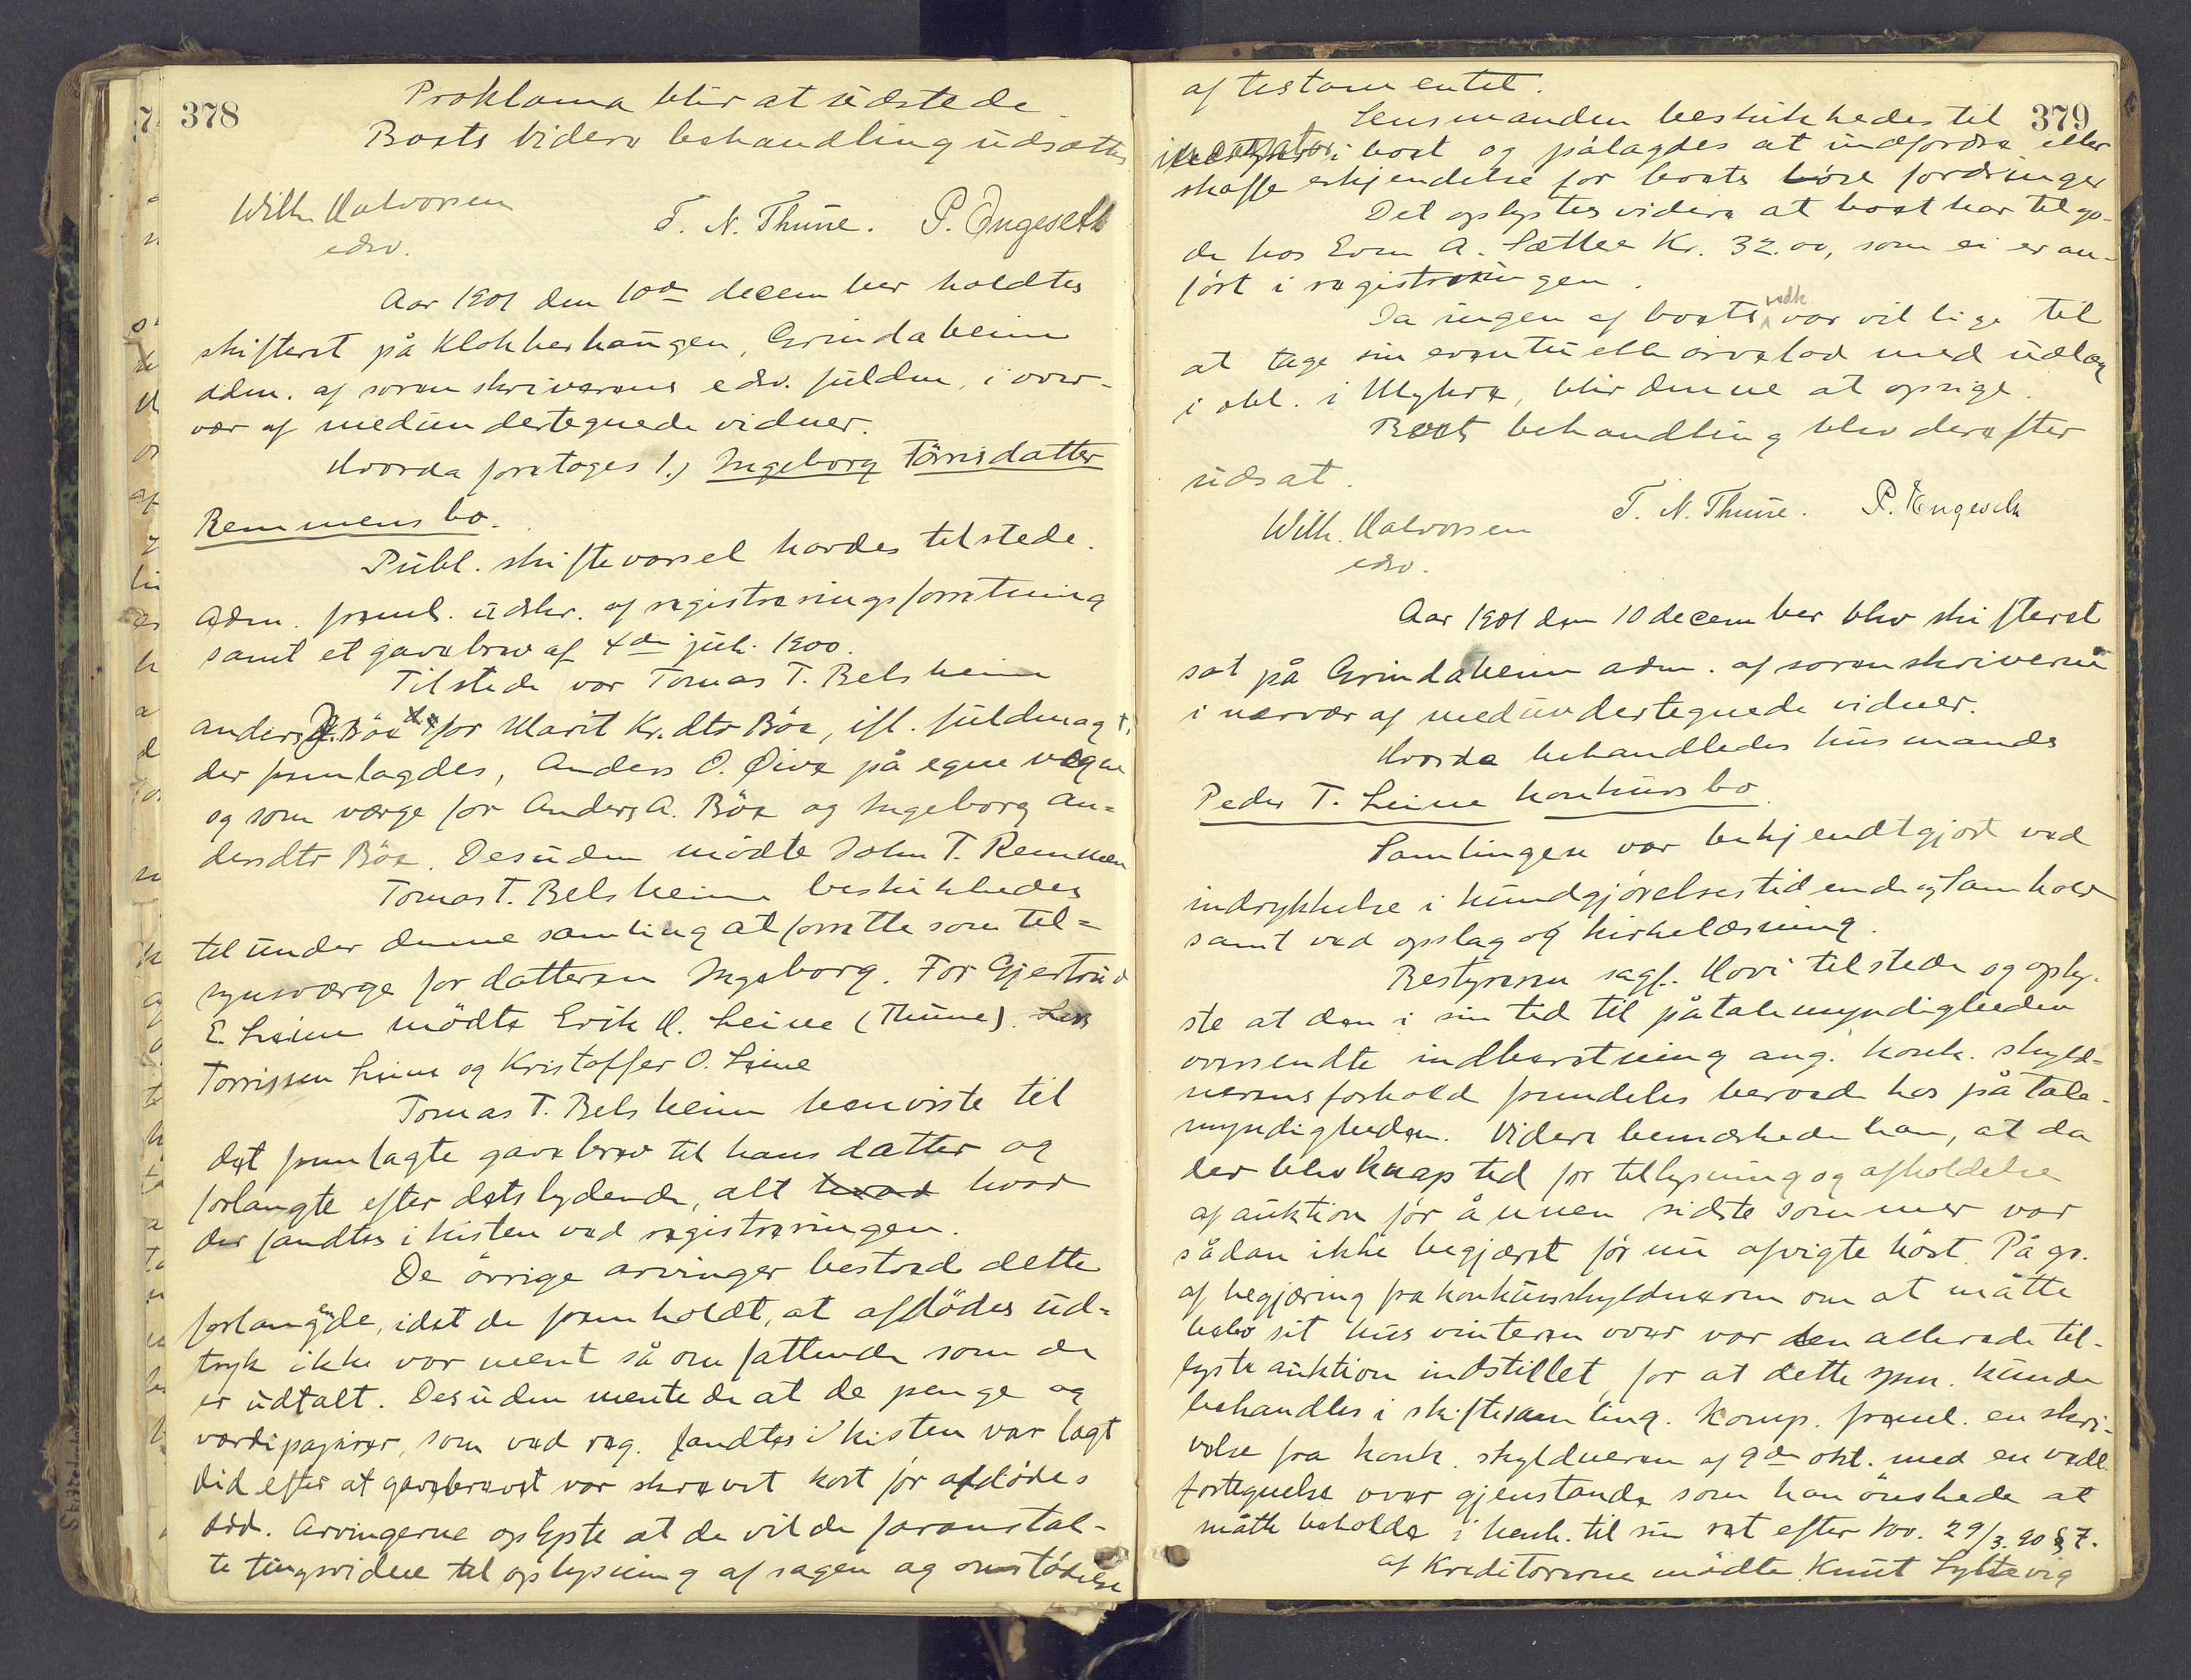 378
Proklama blir at udstede
Boets videre behandling udsættes
Wilh. Halvorsen
edsv.
T. N. Thune. P. Engeseth
Aar 1901 den 10de december holdtes
skifteret på Klokkerhaugen, Grindaheim
adm. af sorenskriverens edsv. fuldm. i over-
vær af medundertegnede vidner.
Hvorda foretoges 1.) Ingeborg Törrisdatter
Remmens bo.
Publ. skiftevarsel havdes tilstede.
Adm. freml. udskr. af registreringsforretning
samt et gavebrev af 4de juli 1900.
Tilstede var Tomas T. Belsheim
Anders Böe for Marit Kr.dtr Böe, ifl. fuldmagt,
der fremlagdes, Anders O. Øive på egne vegne
og som værge for Anders A. Böe og Ingeborg An-
dersdtr Böe. Desuden mödte John T. Remmen
Tomas T. Belsheim beskikkedes
til under denne samling at forrette som til-
synsværge for datteren Ingeborg. For Gjertrud
E. Leine mödte Erik H. Leine (Thune). Lars
Torrissen Leine og Kristoffer O. Leine
Tomas T. Belsheim henviste til
det fremlagte gavebrev til hans datter og
forlangte efter dets lydende, alt hvad hvad
der fandtes i kisten ved registreringen.
De övrige arvinger bestred dette
forlangende, idet de fremholdt, at afdödes ud-
tryk ikke var ment så omfattende som de
er udtalt. Desuden mente de at de penge og
værdipapirer, som ved reg. fandtes i kisten var lagt
did efter at gavebrevet var skrevet kort för afdödes
död. Arvingerne oplyste at de vilde foranstal-
te tingsvidne til oplysning af sagen og omstödelse
379
af testamentet.
Lensmanden beskikkedes til
inkassator i boet og pålagdes at indfordre eller
skaffe erkjendelse for boets löse fordringer
Det oplystes videre at boet har tilgo-
de hos Even A. Sætlee Kr. 32.00, som ei er an-
fört i registreringen.
Da ingen af boets vedk. var villige til
at tage sin eventuelle arvelod med udlæg
i obl. i Mykre, blir denne at opsige.
Boets behandling blev derefter
udsat.
Wilh. Halvorsen
edsv.
T. N. Thune. P. Engeseth
Aar 1901 den 10 december blev skifteret
sat på Grindaheim adm. af sorenskriveren
i nærvær af medundertegnede vidner.
Hvorda behandledes husmands
Peder T. Leine konkursbo
Samlingen var bekjendtgjort ved
indrykkelse i kundgjörelsestidende og Samhold
samt ved opslag og kirkelæsning.
Bestyreren sagf. Hovi tilstede og oply-
ste at den i sin tid til påtalemyndigheden
oversendte indberetning ang. konk. skyld-
nerens forhold fremdeles beroede hos påtale-
myndigheden. Videre bemærkede han, at da
der blev knap tid for tillysning og afholdelse
af auktion för ånnen sidste sommer var
sådan ikke begjæret för nu afvigte höst. På gr.
af begjæring fra konkursskyldneren om at måtte
bebo sit hus vinteren over var den allerede til-
lyste auktion indstillet, for at dette spm. kunde
behandles i skiftesamling. Komp. freml. en skri-
velse fra konk. skyldneren af 9de okt. med en vedl.
fortegnelse over gjenstande som han önskede at
måtte beholde i henh. til sin ret efter lov. 29/3. 90 § 7.
Af kreditorerne mödte Knut Syltevig